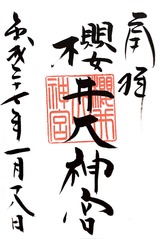 奉拝
櫻井大神宮
櫻井
神宮
平成二十七年一月八日